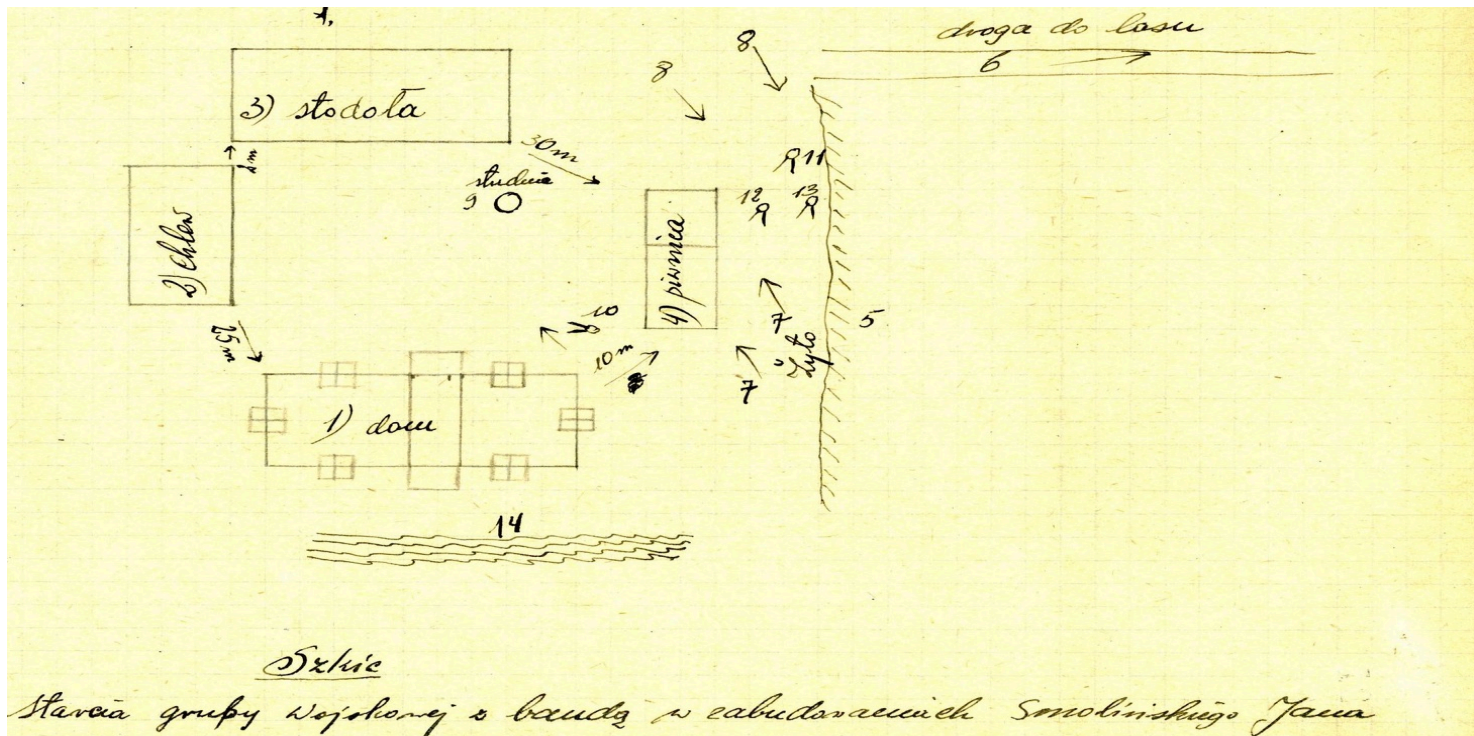 1,
droga do lasu
8
8
6
3) stodoła
30m
2m
studnia
9
11
12
13
2) Chlew
4) piwnica
10
7
5
25m
10m
7
żyto
1) dom
14
Szkic
starcia grupy wojskowej z bandą w zabudowaniach Smolińskiego Jana